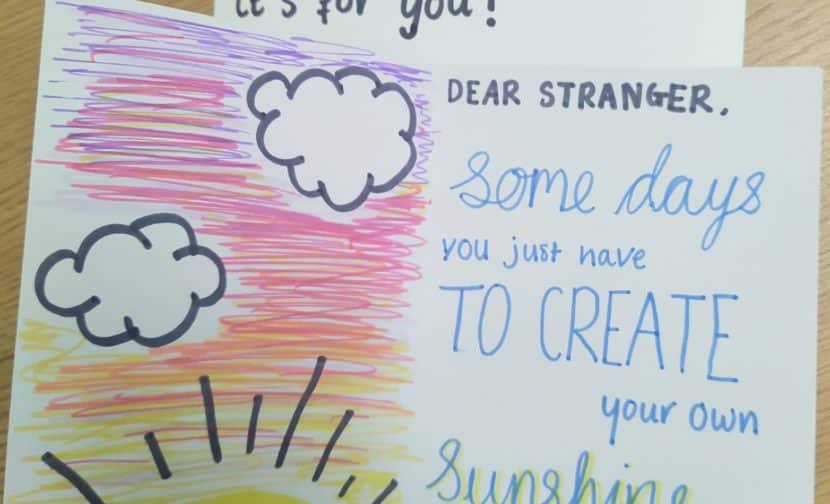 it's for you!
DEAR STRANGER,
some days
you just have
TO CREATE
your own
Sunshine